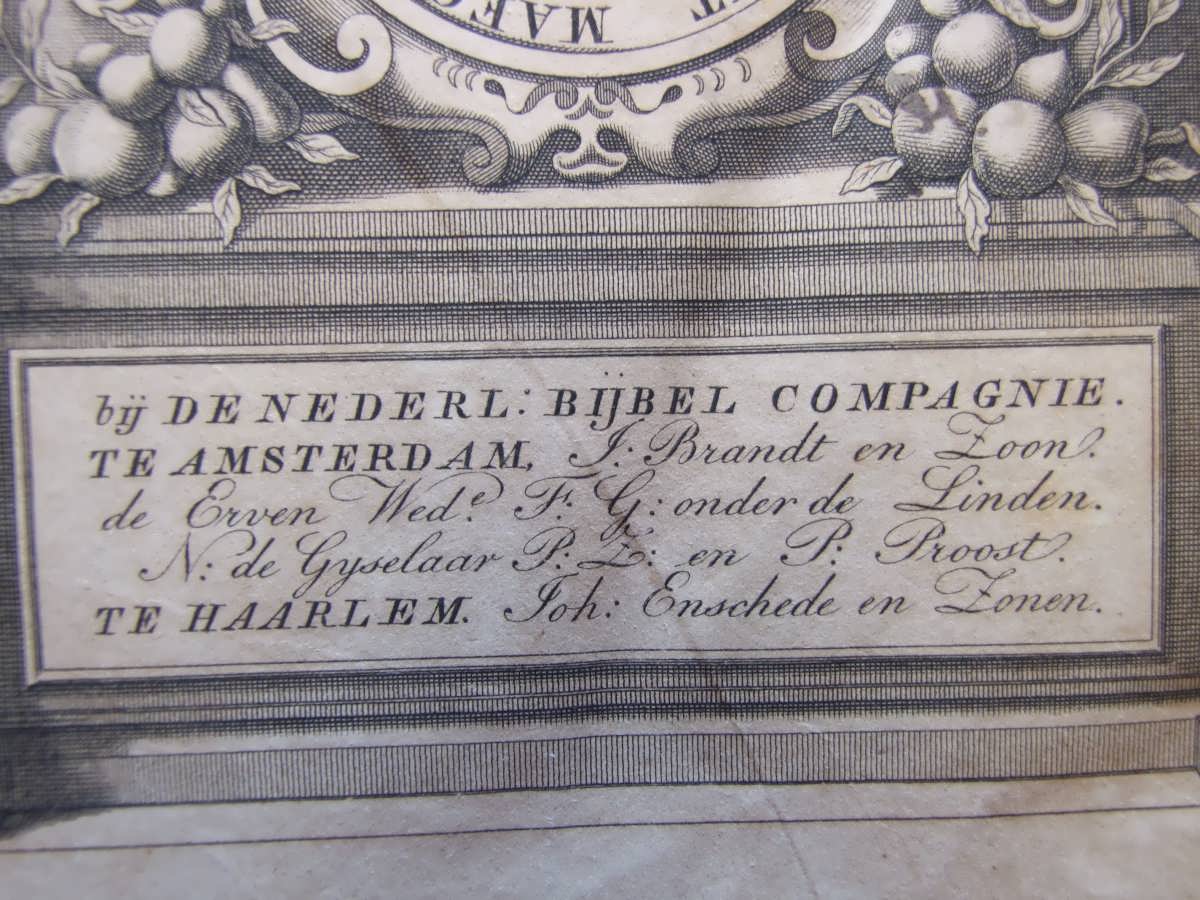 MAEC
T
bij DE NEDERL: BIJBEL COMPAGNIE.
TE AMSTERDAM, J: Brandt en Zoon.
de Erven Wed.e F. G: onder de Linden.
N: de Gyselaar P: Z: en P: Proost.
TE HAARLEM. Joh: Enschede en Zonen.